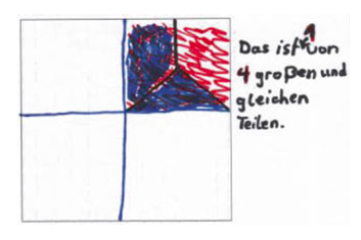 Das ist 1 von
4 großen und
gleichen
Teilen.